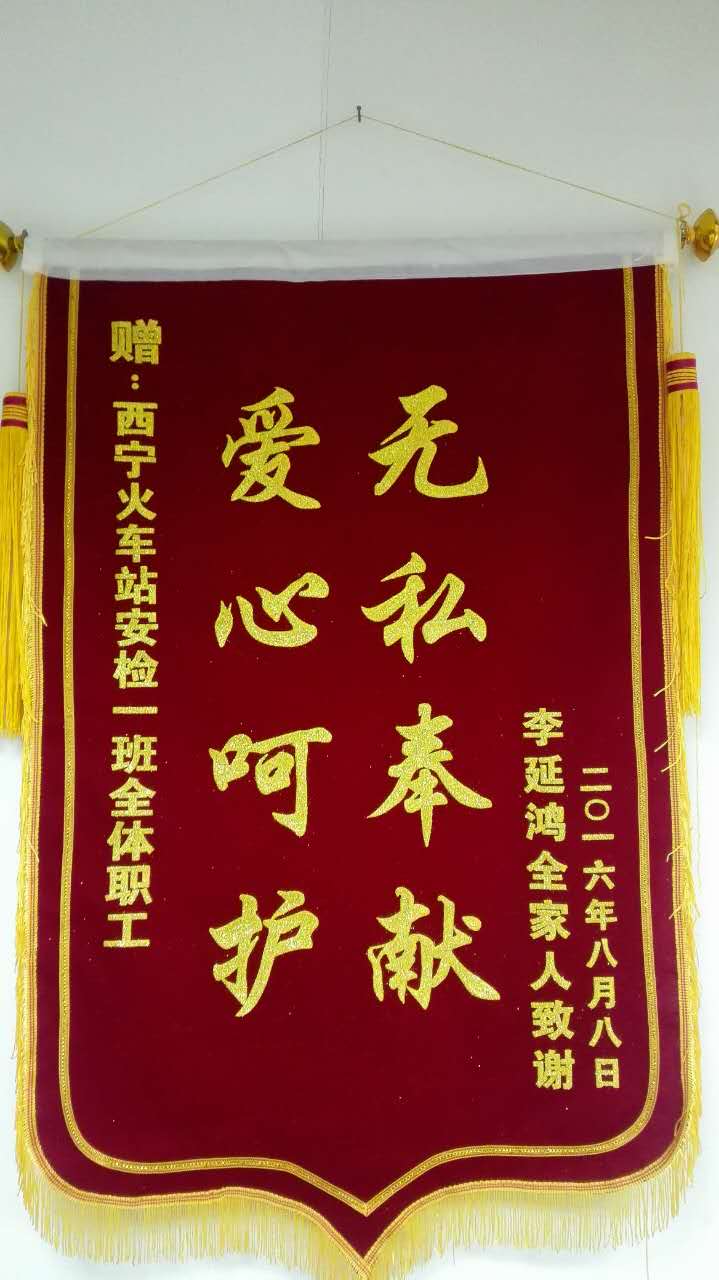 赠：西宁火车站安检一班全体职工
爱心呵护
无私奉献
李延鸿全家人致谢
二〇一六年八月八日